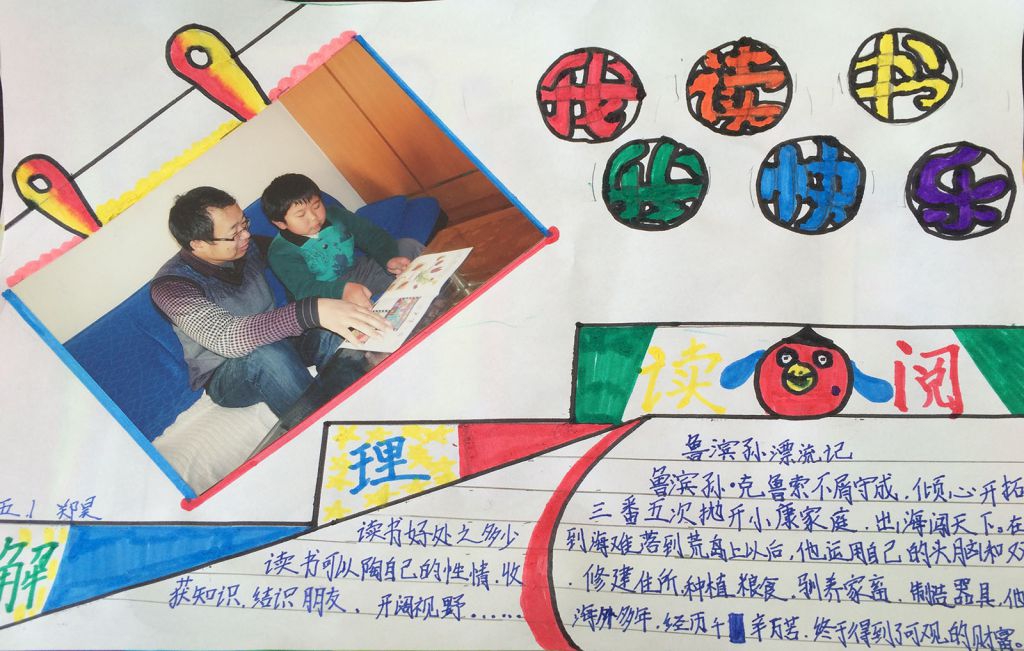 我读书
我快乐
读 阅
理
解
五.1 郑昊
读书好处之多少
读书可以陶自己的性情.收
获知识.结识朋友, 开阔视野.......
鲁滨孙漂流记
鲁滨孙·克鲁索不屑守成,倾心开拓
三番五次抛开小康家庭,出海闯天下。在
到海难落到荒岛上以后,他运用自己的头脑和双
,修建住所,种植粮食,驯养家畜,制造器具,他
海外多年,经历千辛万苦,终于得到了可观的财富。